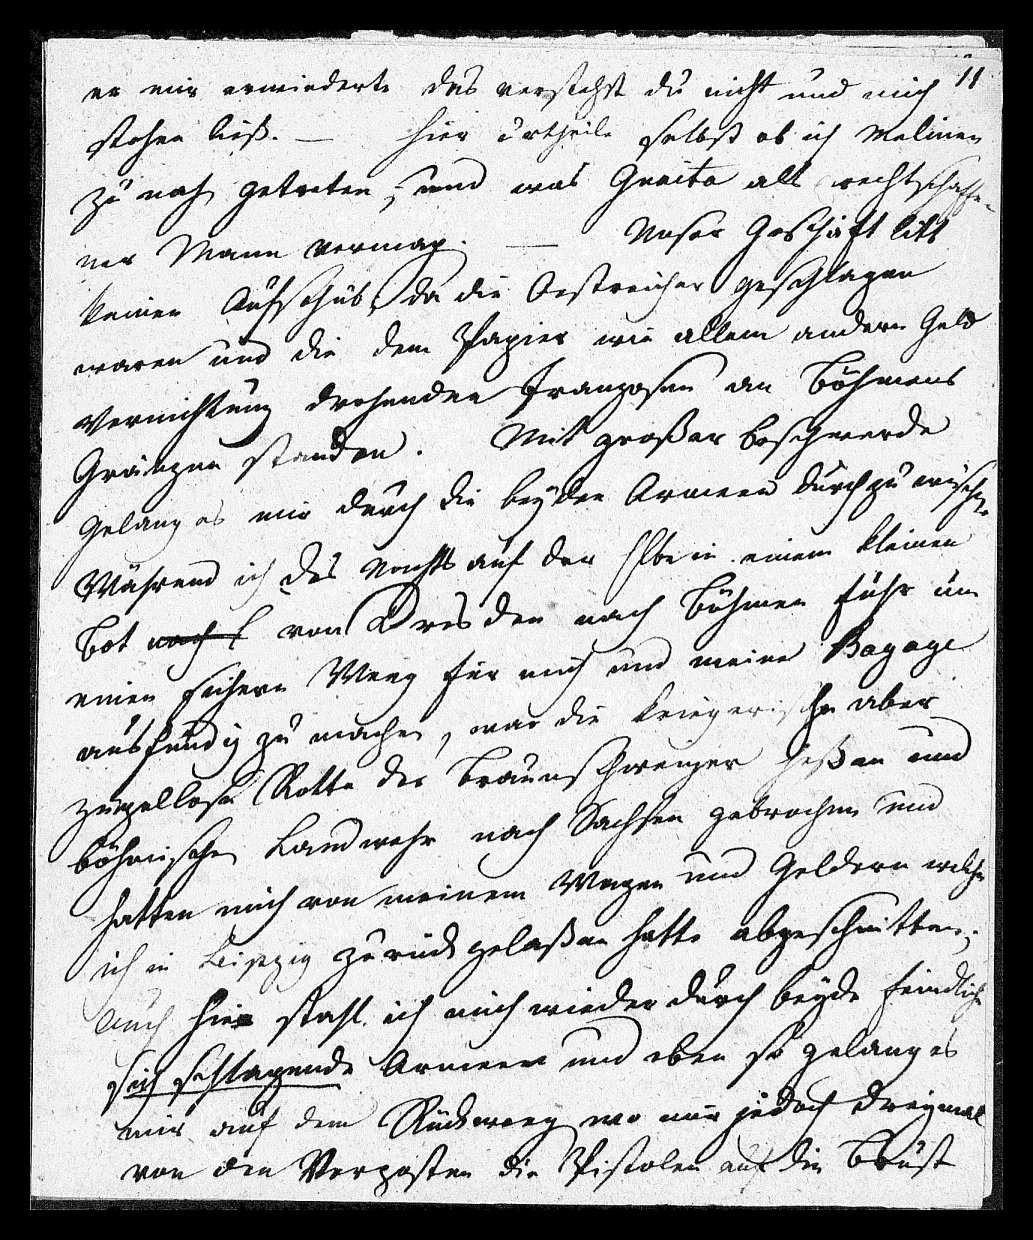 11
er mir erwiederte das verstehst du nicht und mich
stehen ließ. — Hier urtheile selbst ob ich Melinen
zu nah getreten, und was Gruita als rechtschaffe-
ner Mann vermag. — Unser Geschäft litt
keinen Aufschub, da die Oestreicher geschlagen
waren und die dem Papier wie allem andern Geld
Vernichtung drohenden Franzosen an Böhmens
Gränzen standen. Mit großer Beschwerde
gelang es mir durch die beyden Armeen durchzuwischen
Während ich des Nachts auf der Elbe in einem kleinen
Bot nach von Dresden nach Böhmen fuhr um
einen sichern Weeg für mich und meine Bagage
ausfündig zu machen, war die kriegerische aber
zügellose Rotte der Braunschweiger Heßen und
böhmische Landwehr nach Sachsen gebrochen und
hatten mich von meinem Wagen und Geldern welche
ich in Leipzig zurück gelaßen hatte abgeschnitten;
auch hier stahl ich mich wieder durch beyde feindliche
sich schlagende Armeen und eben so gelang es
mir auf dem Rückweeg wo mir jedoch dreymal
von den Vorposten die Pistolen auf die Brust